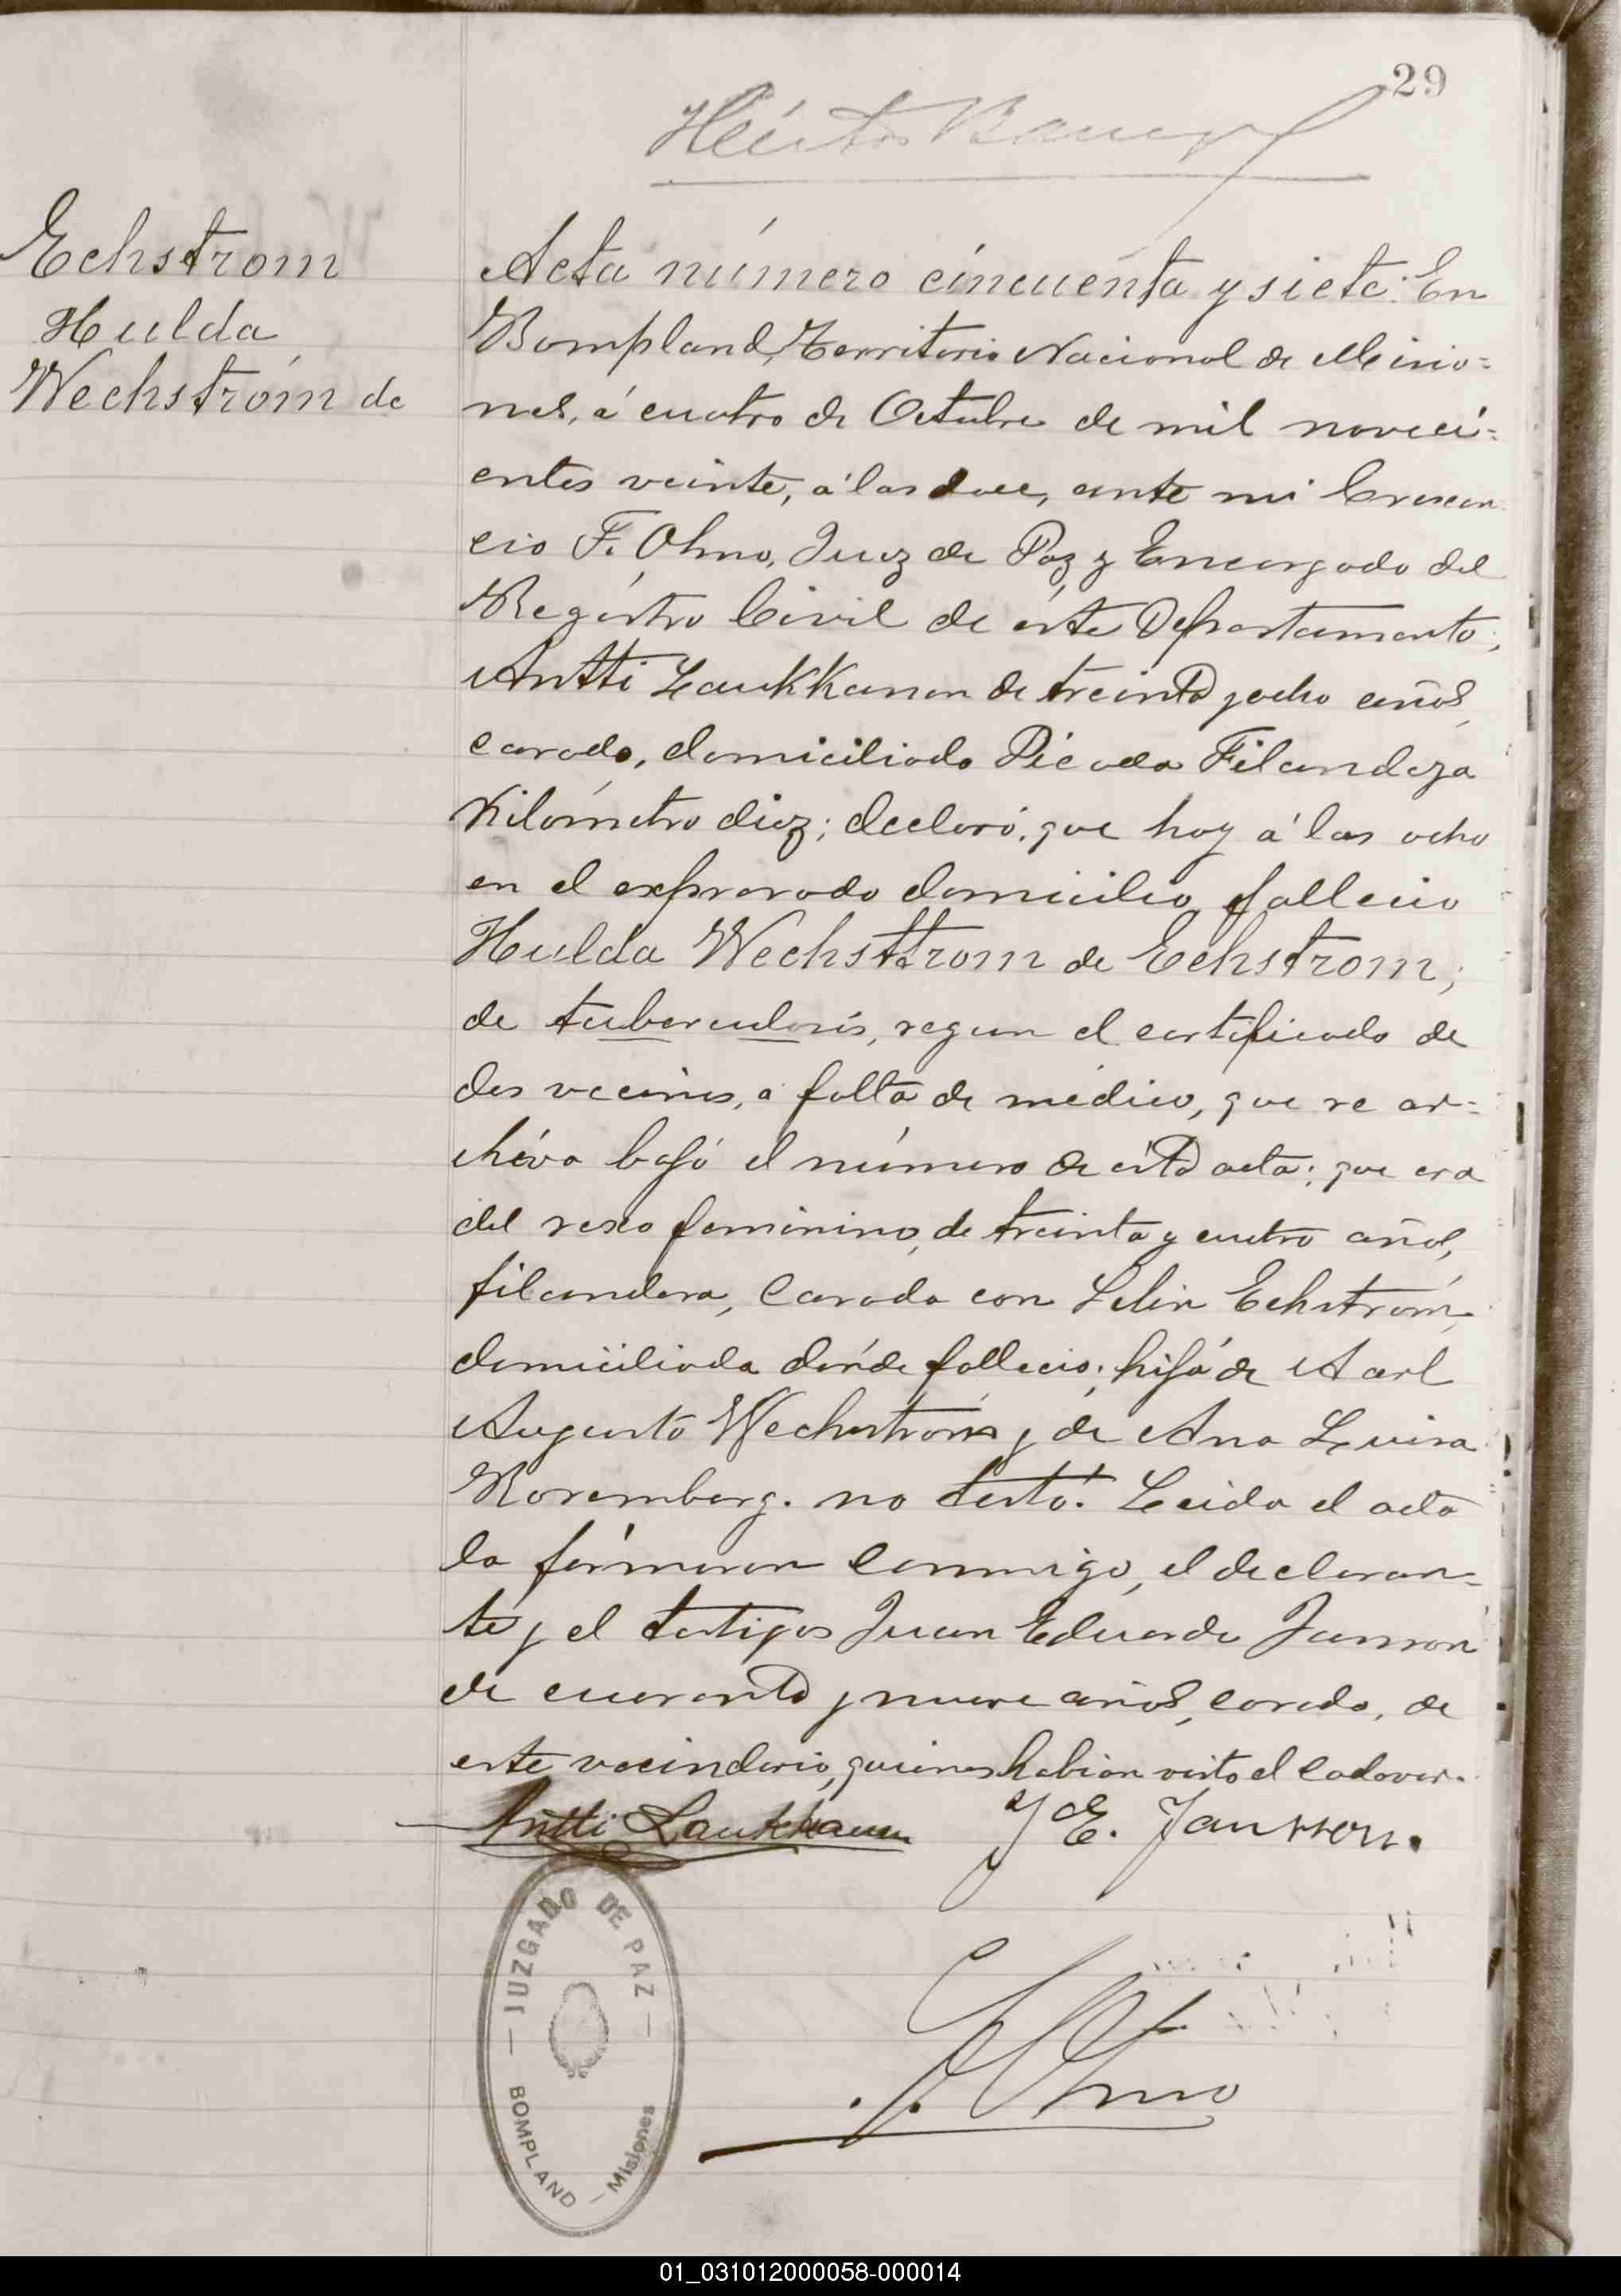 29
Echstrom
Hulda
Wechstrom de
Acta número cincuenta y siete: En
Bompland, Territorio Nacional de Misio=
nes, á cuatro de Octubre de mil noveci=
entos veinte, á las doce, ante mi Crescen
cio F. Olmo, Juez de Paz y Encargado del
Registro Civil de éste Departamento,
Antti Laukkanen de treinta y ocho años,
casado, domiciliado Picada Filandeza
Kilómetro diez; declaró: que hoy á las ocho
en el expresado domicilio fallecio
Hulda Wechsttrom de Echstrom;
de tuberculosis, segun el certificado de
dos vecinos, a falta de médico, que se ar=
chiva bajó el número de ésta acta; que era
del sexo feminino, de treinta y cuatro años,
filandesa, Casada con Echstrom,
domiciliada donde fallecio; hija de Karl
Augusto Wechstrom y de Ana Luisa
Rosemberg. no testó. Leida el acta
la firmaron conmigo, el declaran=
te y el testigos Juan Eduardo Jansson
de cuarenta y nueve años, casado, de
este vecindario, quienes habian visto el cadaver.
Antti Laukkanen J E. Jansson.
JUZGADO DE PAZ
BOMPLAND — Misiones
01_031012000058-000014